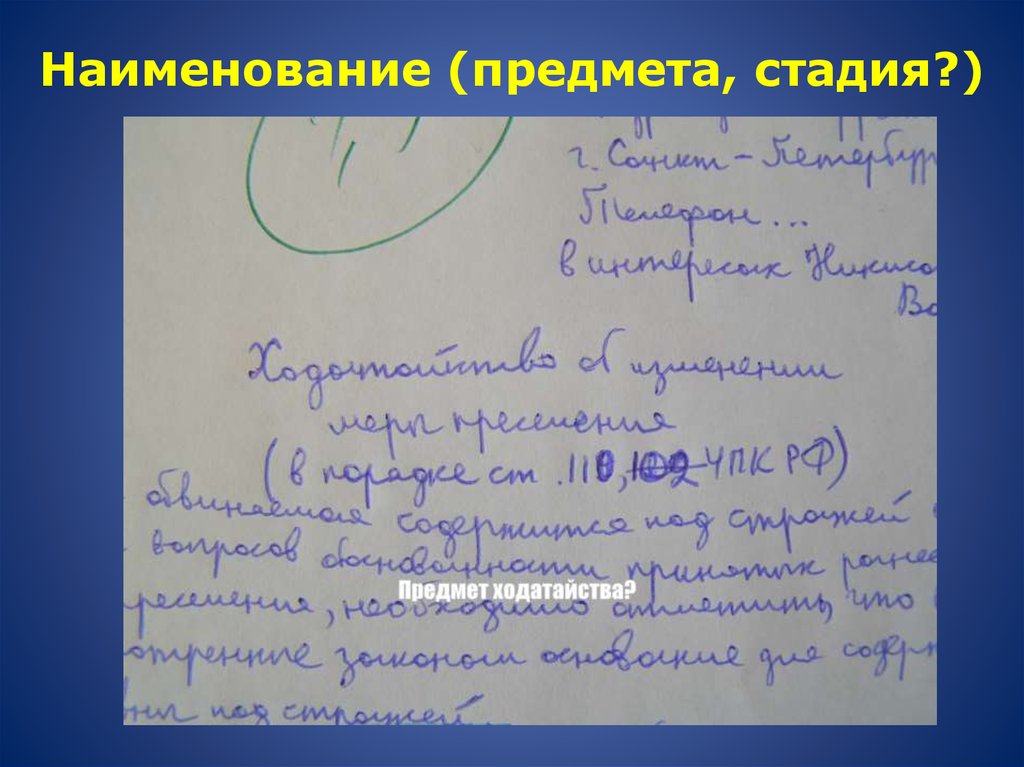 Наименование (предмета, стадия?)
г. Санкт-Петербур
Телефон...
в интересах
Во
Ходатайство об изменении
меры пресечения
(в порядке ст. 110, УПК РФ)
обвиняемая содержится под стражей
вопросов обоснованности принятых ранее
Предмет ходатайства?
ресечения, необходимо отметить, что
отренные законом основание для содерж
под стражей